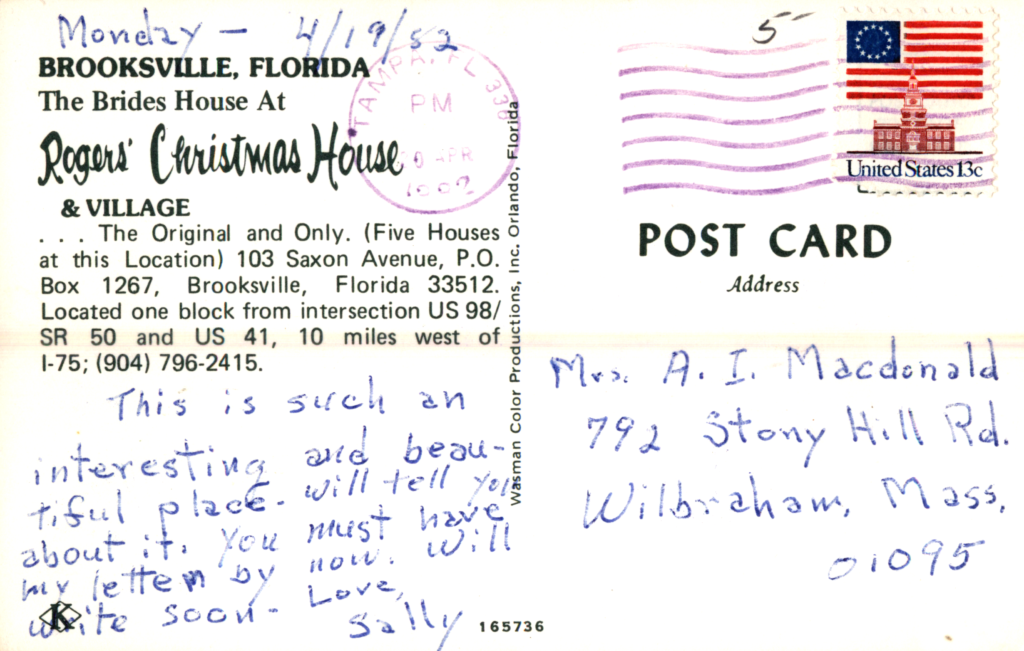 Monday - 4/19/82
BROOKSVILLE, FLORIDA
The Brides House At
Rogers' Christmas House
& VILLAGE
. . . The Original and Only. (Five Houses
at this Location) 103 Saxon Avenue, P.O.
Box 1267, Brooksville, Florida 33512.
Located one block from intersection US 98/
SR 50 and US 41, 10 miles west of
I-75; (904) 796-2415.
This is such an
interesting and beau-
tiful place. will tell you
about it. You must have
my letter by now. Will
write soon - Love,
Sally
K
165736
Wasman Color Productions, Inc. Orlando, Florida
TAMPA, FL
PM
APR
5
United States 13c
POST CARD
Address
Mrs. A. I. Macdonald
792 Stony Hill Rd.
Wilbraham, Mass,
01095